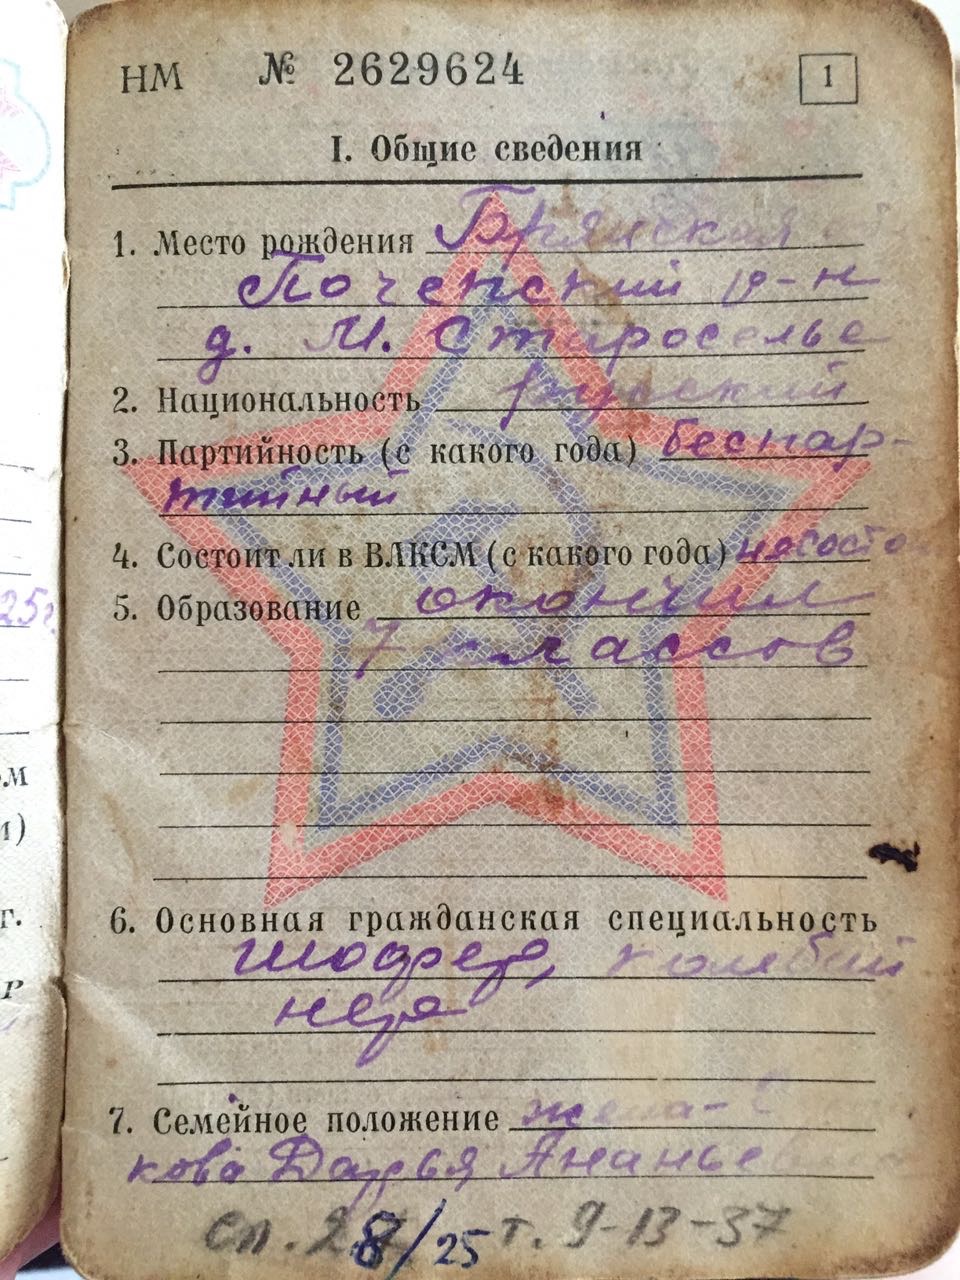 НМ № 2629624 1
I. Общие сведения
1. Место рождения Брянская
Почепский р-н
д. М. Староселье
2. Национальность русский
3. Партийность (с какого года) беспар-
тийный
4. Состоит ли в ВЛКСМ (с какого года)
5. Образование окончил
7 классов
6. Основная гражданская специальность
шофер, комбай
нер
7. Семейное положение жена-
кова Дарья
/25 т. 9-13-37
25г.
ом
и)
г.
Р